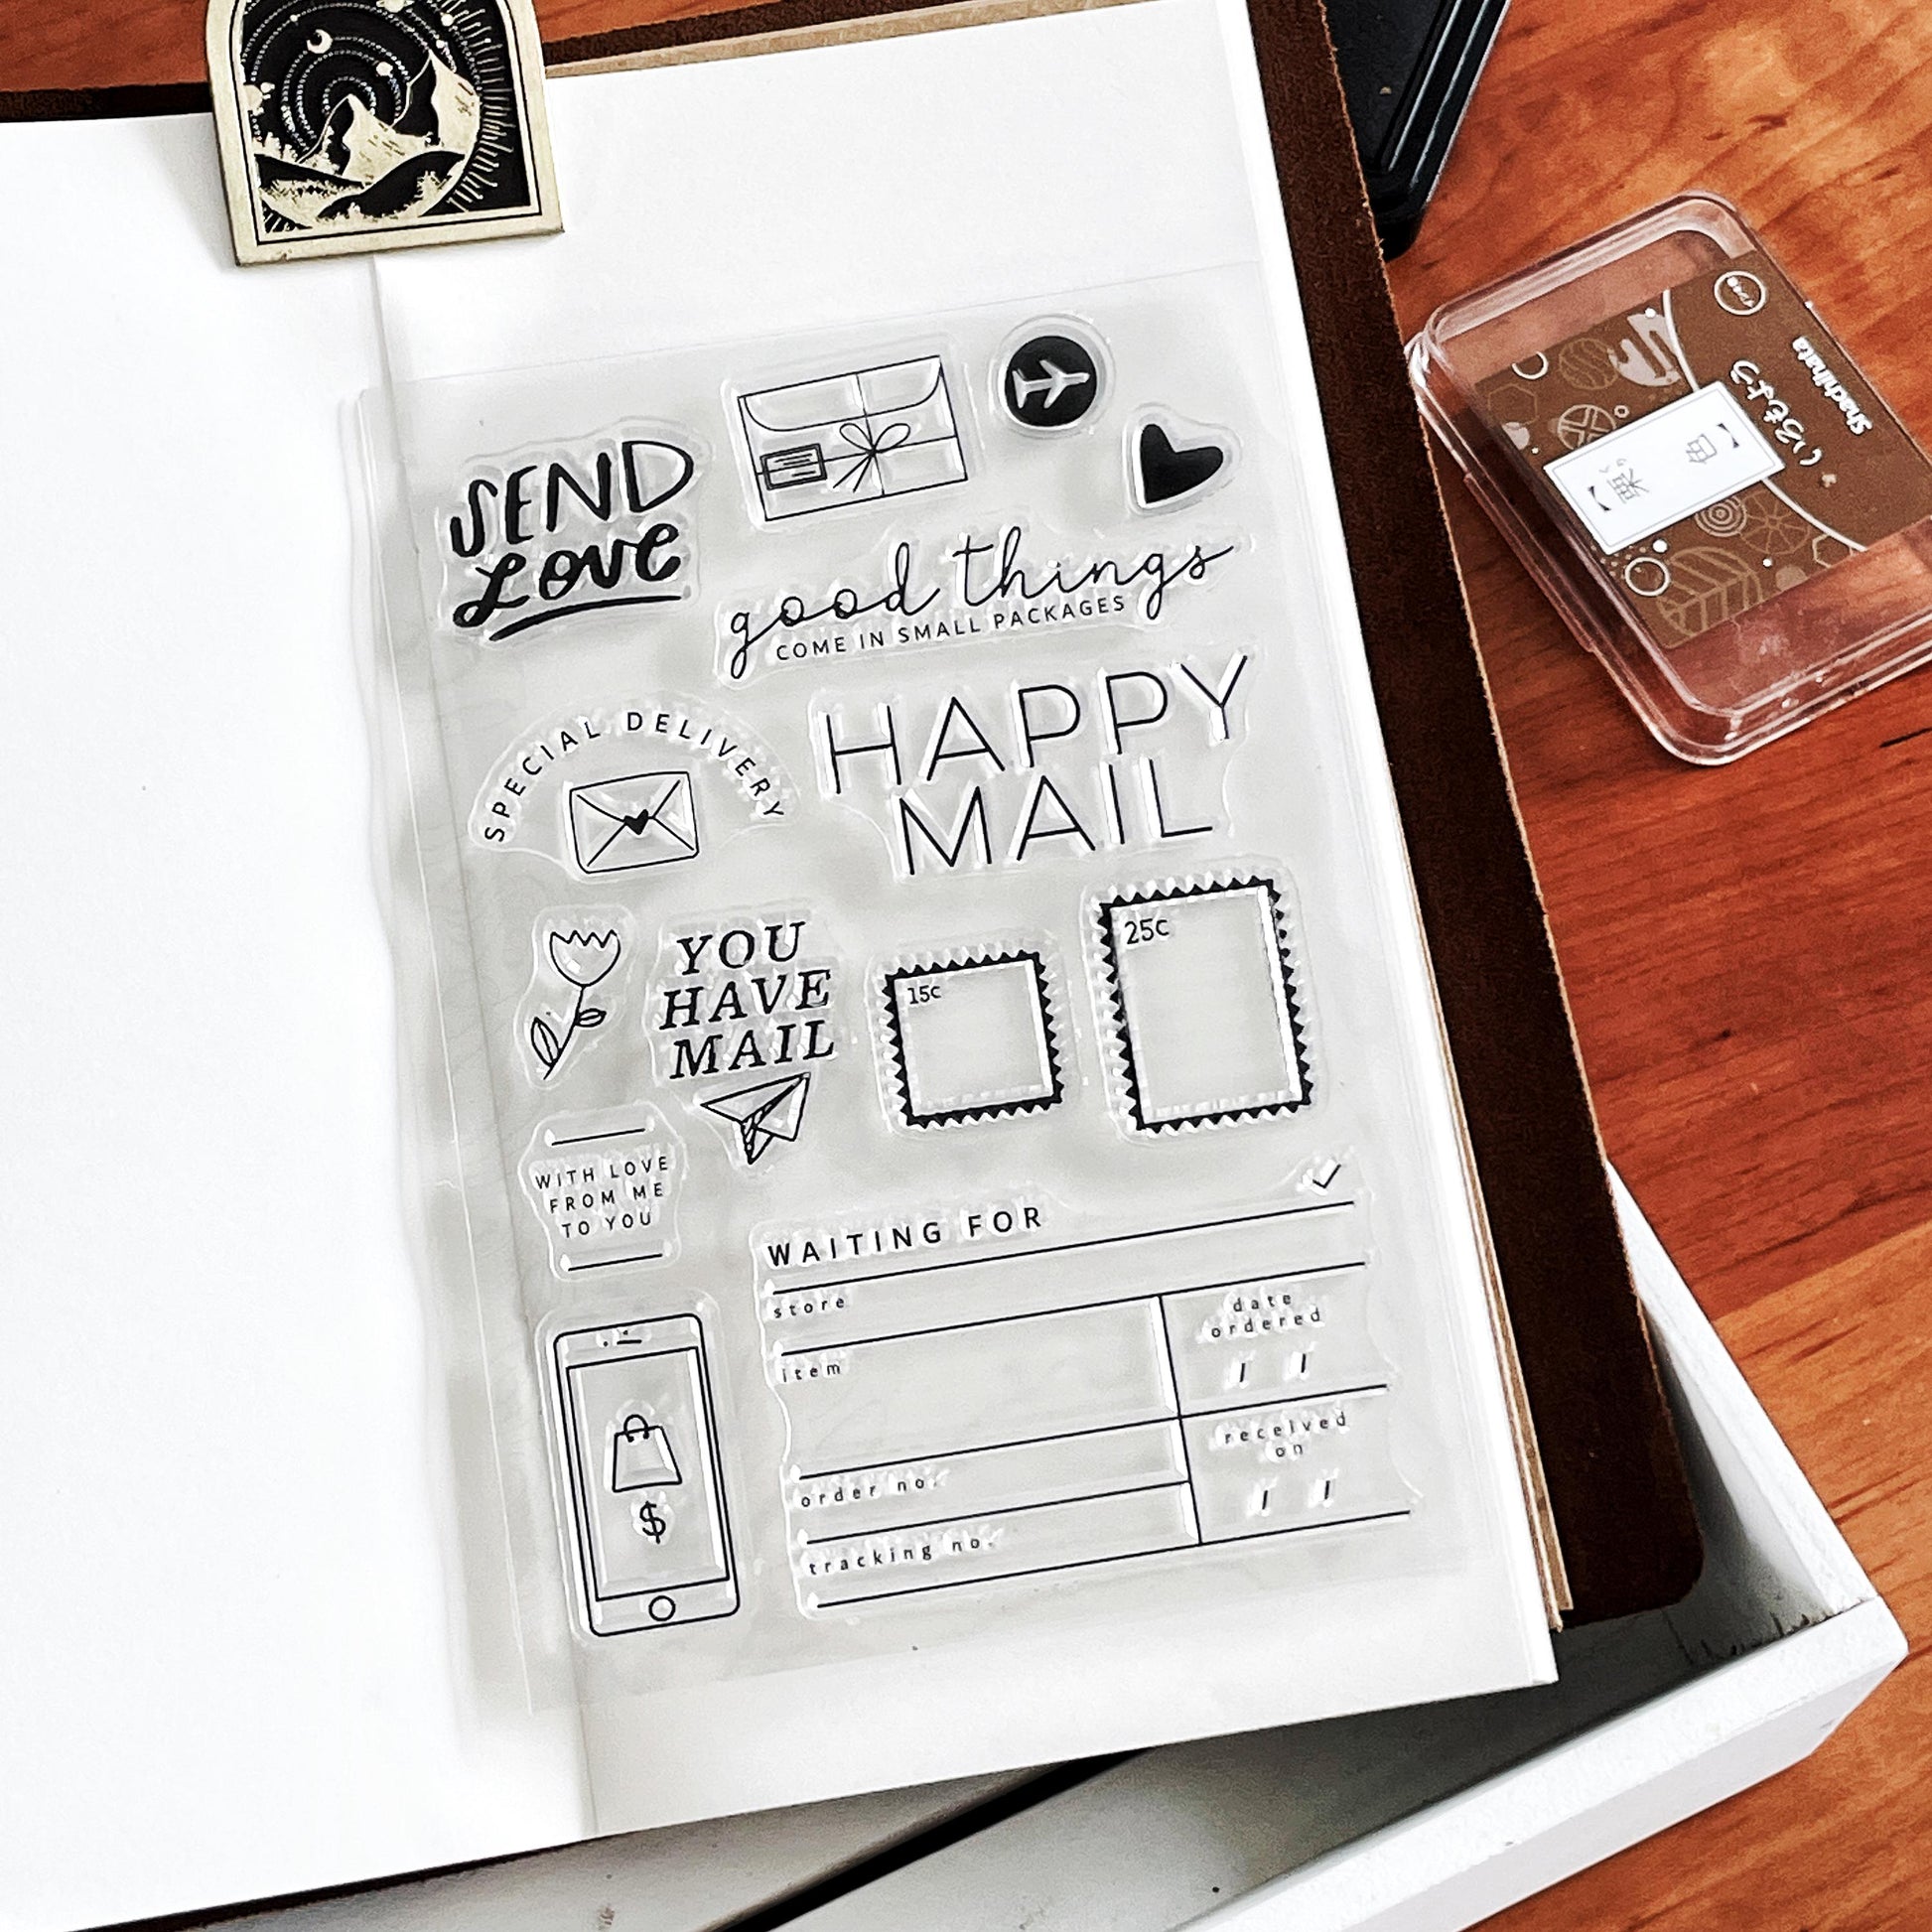 SEND
Love
good things
COME IN SMALL PACKAGES
SPECIAL DELIVERY
HAPPY
MAIL
YOU
HAVE
MAIL
15c
25c
WITH LOVE
FROM ME
TO YOU
WAITING FOR
store
item
order no.
tracking no.
date
ordered
/ /
received
on
/ /
$
Shachihata
いろもよう